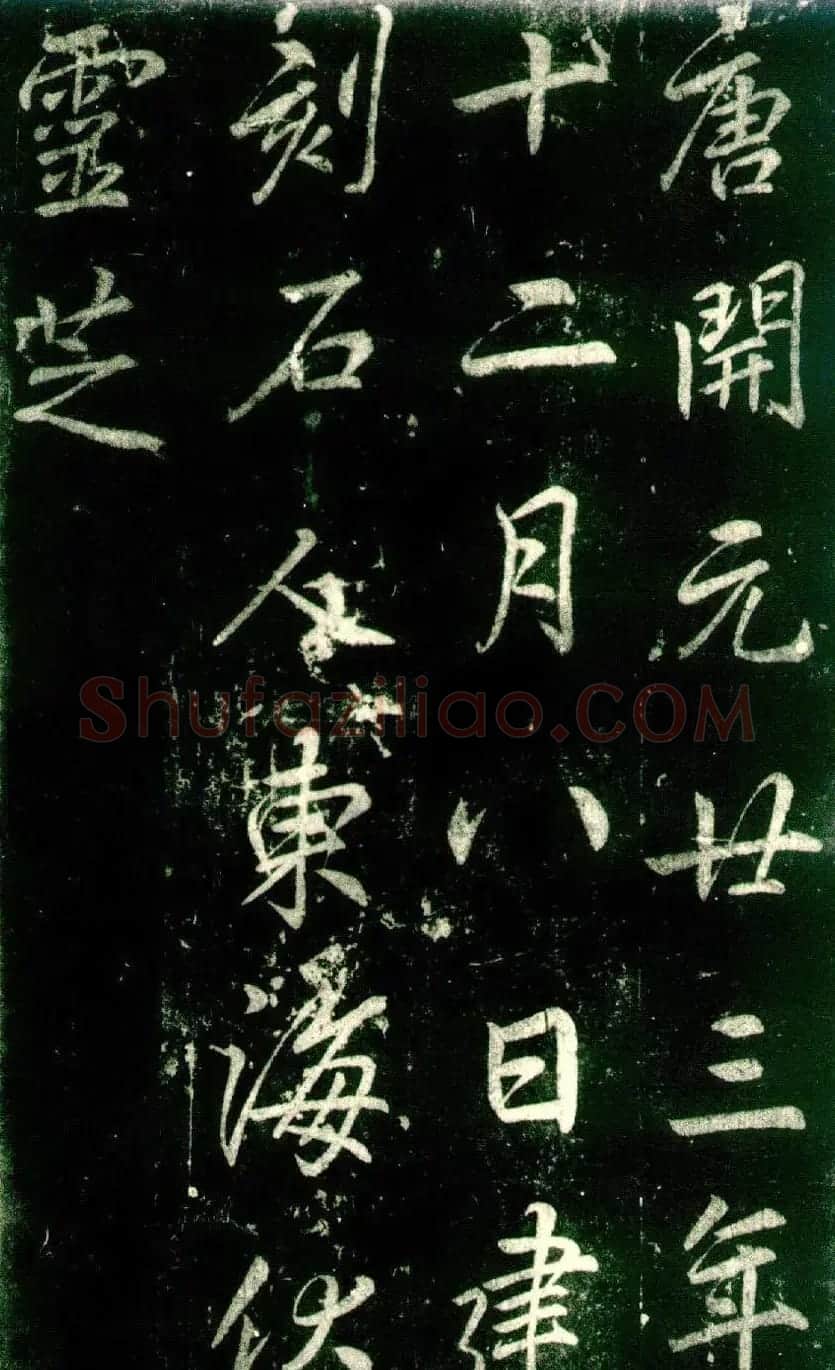 唐開元廿三年
十二月八日建
刻石人東海伏
靈芝
Shufaziliao.COM